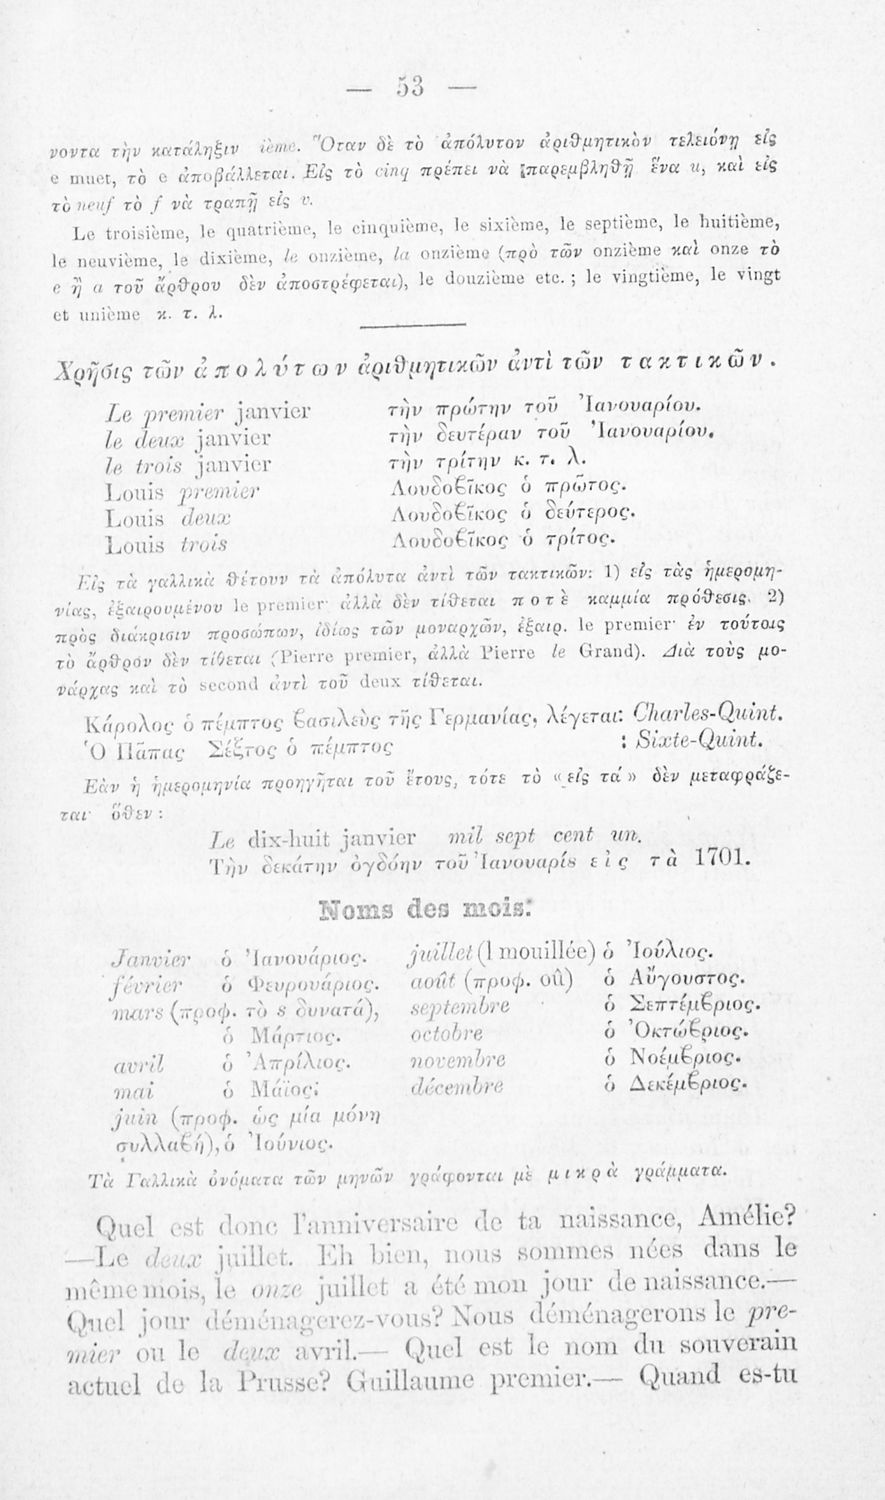 — 53 —
νοντα τὴν κατάληξιν ième. Ὅταν δὲ τὸ ἀπόλυτον ἀριθμητικὸν τελειόνῃ εἰς
e muet, τὸ e ἀποβάλλεται. Εἰς τὸ cinq πρέπει νὰ παρεμβληθῇ ἕνα u, καὶ εἰς
τὸ neuf τὸ f νὰ τραπῇ εἰς v.
Le troisième, le quatrième, le cinquième, le sixième, le septième, le huitième,
le neuvième, le dixième, le onzième, la onzième (πρὸ τῶν onzième καὶ onze τὸ
e ἢ a τοῦ ἄρθρου δὲν ἀποστρέφεται), le douzième etc. ; le vingtième, le vingt
et unième κ. τ. λ.
Χρῆσις τῶν ἀπολύτων ἀριθμητικῶν ἀντὶ τῶν τακτικῶν.
Le premier janvier τὴν πρώτην τοῦ Ἰανουαρίου.
le deux janvier τὴν δευτέραν τοῦ Ἰανουαρίου.
le trois janvier τὴν τρίτην κ. τ. λ.
Louis premier Λουδοϐῖκος ὁ πρῶτος.
Louis deux Λουδοϐῖκος ὁ δεύτερος.
Louis trois Λουδοϐῖκος ὁ τρίτος.
Εἰς τὰ γαλλικὰ θέτουν τὰ ἀπόλυτα ἀντὶ τῶν τακτικῶν: 1) εἰς τὰς ἡμερομη-
νίας, ἐξαιρουμένου le premier· ἀλλὰ δὲν τίθεται ποτὲ καμμία πρόθεσις. 2)
πρὸς διάκρισιν προσώπων, ἰδίως τῶν μοναρχῶν, ἐξαιρ. le premier· ἐν τούτοις
τὸ ἄρθρον δὲν τίθεται (Pierre premier, ἀλλὰ Pierre le Grand). Διὰ τοὺς μο-
νάρχας καὶ τὸ second ἀντὶ τοῦ deux τίθεται.
Κάρολος ὁ πέμπτος ϐασιλεὺς τῆς Γερμανίας, λέγεται: Charles-Quint.
Ὁ Πᾶπας Σέξτος ὁ πέμπτος : Sixte-Quint.
Ἐὰν ἡ ἡμερομηνία προηγῆται τοῦ ἔτους, τότε τὸ «εἰς τά» δὲν μεταφράζε-
ται· ὅθεν :
Le dix-huit janvier mil sept cent un.
Τὴν δεκάτην ὀγδόην τοῦ Ἰανουαρίȣ εἰς τὰ 1701.
Noms des mois:
Janvier ὁ Ἰανουάριος. juillet (l mouillée) ὁ Ἰούλιος.
février ὁ Φευρουάριος. août (προφ. oû) ὁ Αὔγουστος.
mars (προφ. τὸ s δυνατά), septembre ὁ Σεπτέμϐριος.
ὁ Μάρτιος. octobre ὁ Ὀκτώϐριος.
avril ὁ Ἀπρίλιος. novembre ὁ Νοέμϐριος.
mai ὁ Μάϊος; décembre ὁ Δεκέμϐριος.
juin (προφ. ὡς μία μόνη
συλλαϐή), ὁ Ἰούνιος.
Τὰ Γαλλικὰ ὀνόματα τῶν μηνῶν γράφονται μὲ μικρὰ γράμματα.
Quel est donc l'anniversaire de ta naissance, Amélie?
—Le deux juillet. Eh bien, nous sommes nées dans le
même mois, le onze juillet a été mon jour de naissance.—
Quel jour déménagerez-vous? Nous déménagerons le pre-
mier ou le deux avril.— Quel est le nom du souverain
actuel de la Prusse? Guillaume premier.— Quand es-tu